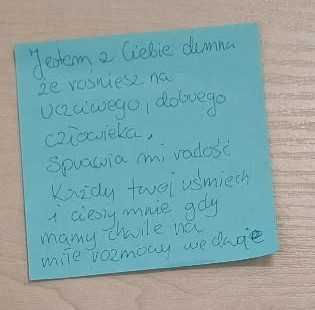 Jestem z Ciebie dumna
że rośniesz na
uczciwego, dobrego
człowieka.
Sprawia mi radość
Każdy twój uśmiech
i cieszy mnie gdy
mamy chwilę na
miłe rozmowy we dwoje